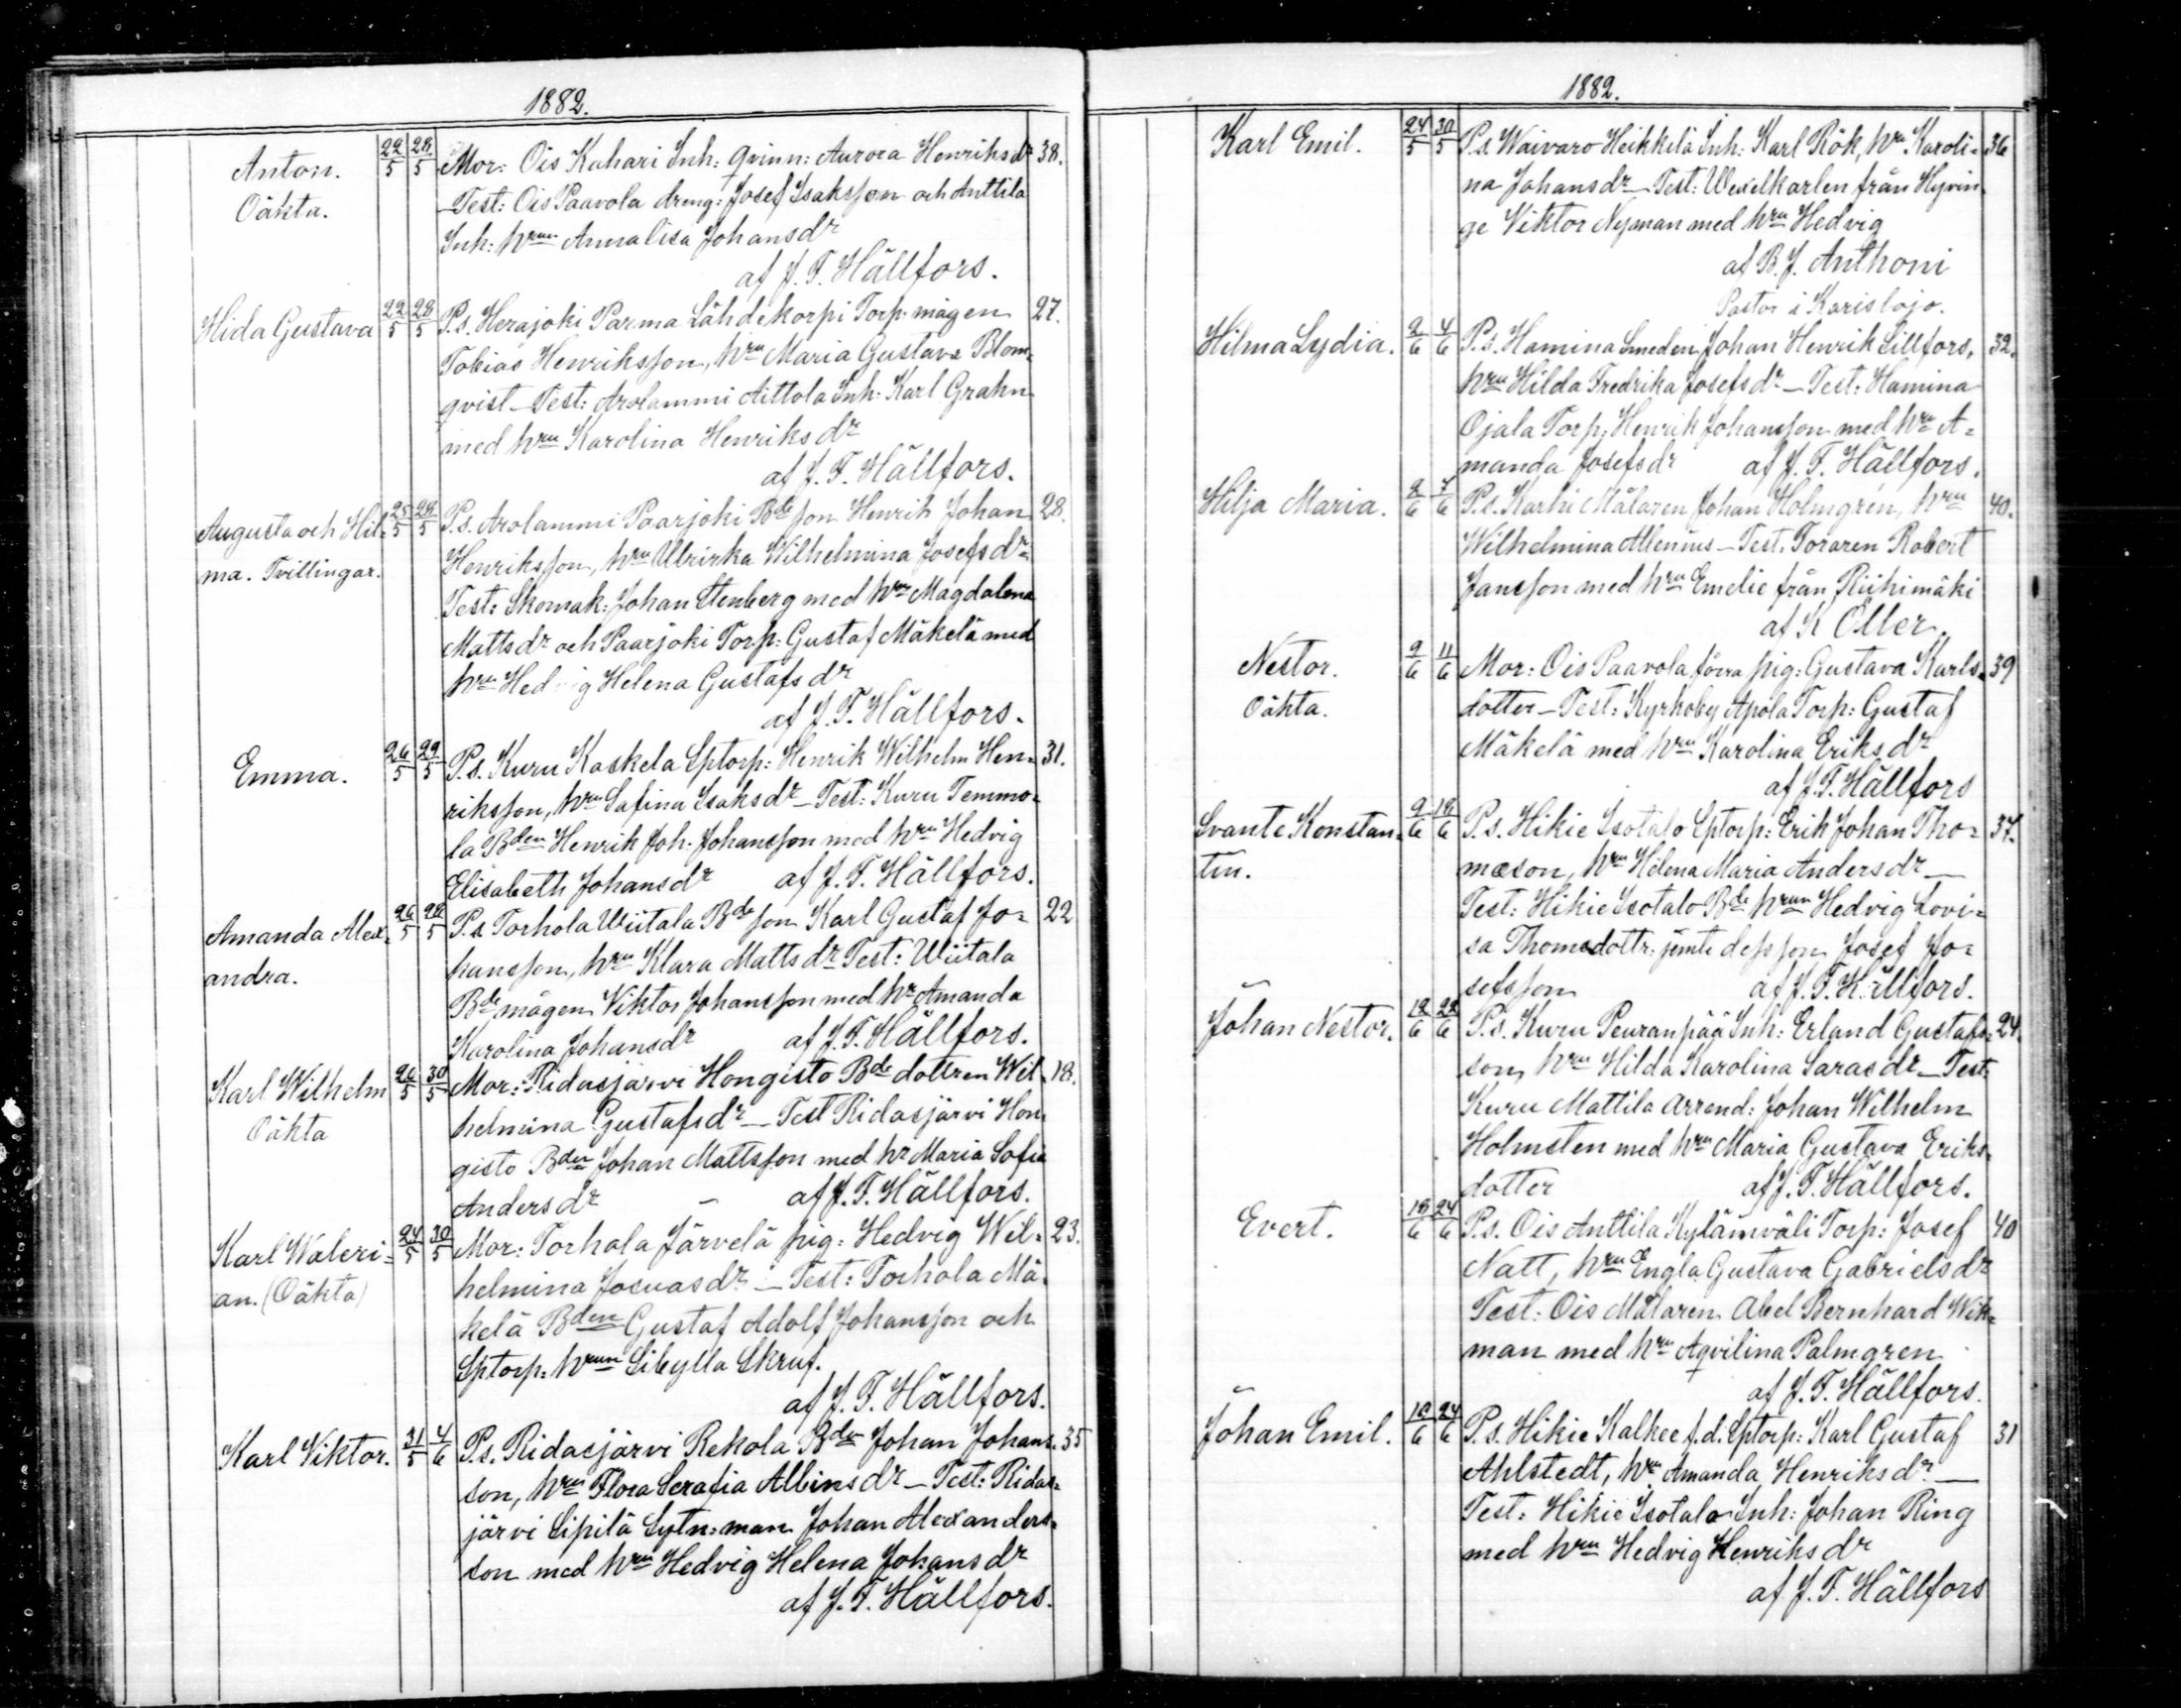 1882.
Anton. 22/5 28/5 Mor: Ois Kahari Inh: qvinn: Aurora Henriksdr 38.
Oäkta. Test: Ois Paavola dreng: Josef Isaksson och Anttila
Inh: hrun Annalisa Johansdr
af J. F. Hällfors.
Hida Gustava 22/5 28/5 P.s. Herajoki Parma Lähdekorpi Torp. mågen 27.
Tobias Henriksson, hru Maria Gustava Blom-
qvist - Test: Arolammi Aittola Inh: Karl Grahn
med hru Karolina Henriksdr
af J. F. Hällfors.
Augusta och Hil- 25/5 28/5 P.s. Arolammi Paarjoki Bde son Henrik Johan 28.
ma. Tvillingar. Henriksson, hru Ulrika Wilhelmina Josefsdr -
Test: Skomak: Johan Stenberg med hru Magdalena
Mattsdr och Paarjoki Torp: Gustaf Mäkelä med
hru Hedvig Helena Gustafsdr
af J. F. Hällfors.
Emma. 26/5 29/5 P.s. Kuru Kaskela Sptorp: Henrik Wilhelm Hen- 31.
riksson, hru Safina Isaksdr - Test: Kuru Temmo-
la Bden Henrik Joh. Johansson med hru Hedvig
Elisabeth Johansdr af J. F. Hällfors.
Amanda Alex- 26/5 28/5 P.s. Torhola Wiitala Bde son Karl Gustaf Jo- 22
andra. hansson, hru Klara Mattsdr Test: Wiitala
Bde mågen Viktor Johansson med hr Amanda
Karolina Johansdr af J. F. Hällfors.
Karl Wilhelm 26/5 30/5 Mor: Ridasjärvi Hongisto Bde dottren Wil- 18.
Oäkta helmina Gustafsdr - Test Ridasjärvi Hon-
gisto Bden Johan Mattsson med hr Maria Sofia
Andersdr - af J. F. Hällfors.
Karl Waleri- 24/5 30/5 Mor: Torhola Järvelä pig: Hedvig Wil- 23.
an. (Oäkta) helmina Josuasdr - Test: Torhola Mä-
kelä Bden Gustaf Adolf Johansson och
Sptorp: hrun Sibylla Skruf.
af J. F. Hällfors.
Karl Viktor. 31/5 4/6 P.s. Ridasjärvi Rekola Bden Johan Johans- 35
son, hru Flora Serafia Albinsdr - Test: Ridas-
järvi Sipilä Sytn: man Johan Alexanders-
son med hru Hedvig Helena Johansdr
af J. F. Hällfors.
1882.
Karl Emil. 24/5 30/5 P.s. Waivaro Heikkilä Inh: Karl Rök, hru Karoli- 36
na Johansdr - Test: Wexelkarlen från Hyvin-
ge Viktor Nyman med hru Hedvig
af B. J. Anthoni
Pastor i Karislojo.
Hilma Lydia. 2/6 4/6 P.s. Hamina Smeden Johan Henrik Lillfors, 32.
hru Hilda Fredrika Josefsdr - Test: Hamina
Ojala Torp: Henrik Johansson med hru A-
manda Josefsdr af J. F. Hällfors.
Hilja Maria. 2/6 7/6 P.s. Karhi Målaren Johan Holmgrén, hru 40.
Wilhelmina Allenius - Test. Foraren Robert
Jansson med hru Emelie från Riihimäki
af K Öller
Nestor. 9/6 11/6 Mor: Ois Paavola förra pig: Gustava Karls- 39
Oäkta. dotter - Test: Kyrkoby Apola Torp: Gustaf
Mäkelä med hru Karolina Eriksdr
af J. F. Hällfors
Svante Konstan- 9/6 12/6 P.s. Hikie Isotalo Sptorp: Erik Johan Tho- 37.
tin. mæson, hru Helena Maria Andersdr -
Test: Hikie Isotalo Bde hrun Hedvig Lovi-
sa Thomedottr. jemte dess son Josef Jo-
sefsson af J. F. Hällfors.
Johan Nestor. 12/6 22/6 P.s. Kuru Peuranpää Inh: Erland Gustafs- 24.
son, hru Hilda Karolina Sarasdr - Test:
Kuru Mattila Arrend: Johan Wilhelm
Holmsten med hru Maria Gustava Eriks-
dotter af J. F. Hällfors.
Evert. 18/6 24/6 P.s. Ois Anttila Kylänväli Torp: Josef 40
Natt, hru Engla Gustava Gabrielsdr
Test: Ois Målaren Abel Bernhard Wik-
man med hru Aqvilina Palmgren
af J. F. Hällfors.
Johan Emil. 18/6 24/6 P.s. Hikie Kalkee f.d. Sptorp: Karl Gustaf 31
Ahlstedt, hru Amanda Henriksdr -
Test: Hikie Isotalo Inh: Johan Ring
med hru Hedvig Henriksdr
af J. F. Hällfors